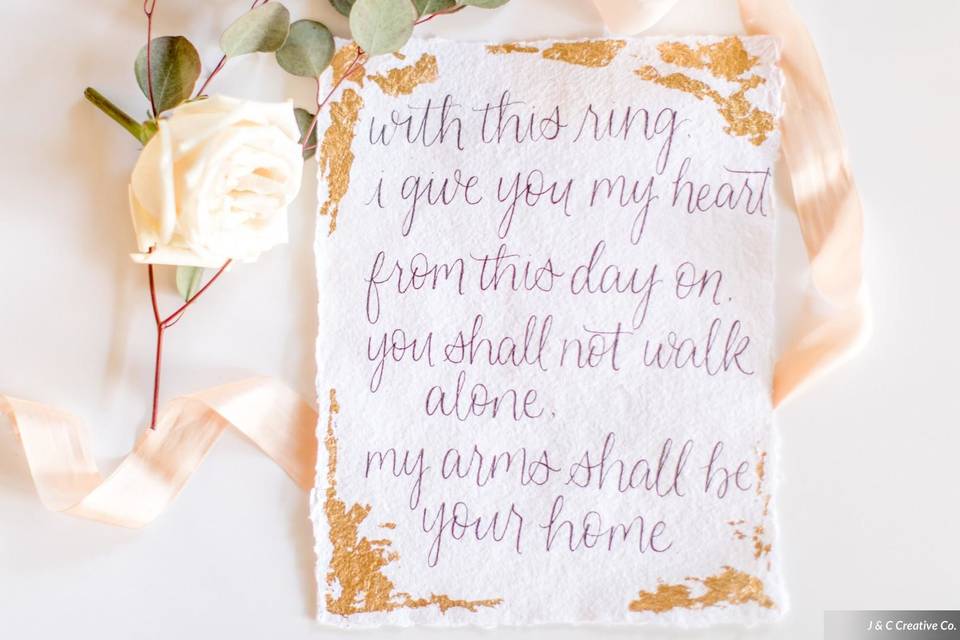 with this ring.
i give you my heart
from this day on.
you shall not walk
alone.
my arms shall be
your home
J & C Creative Co.